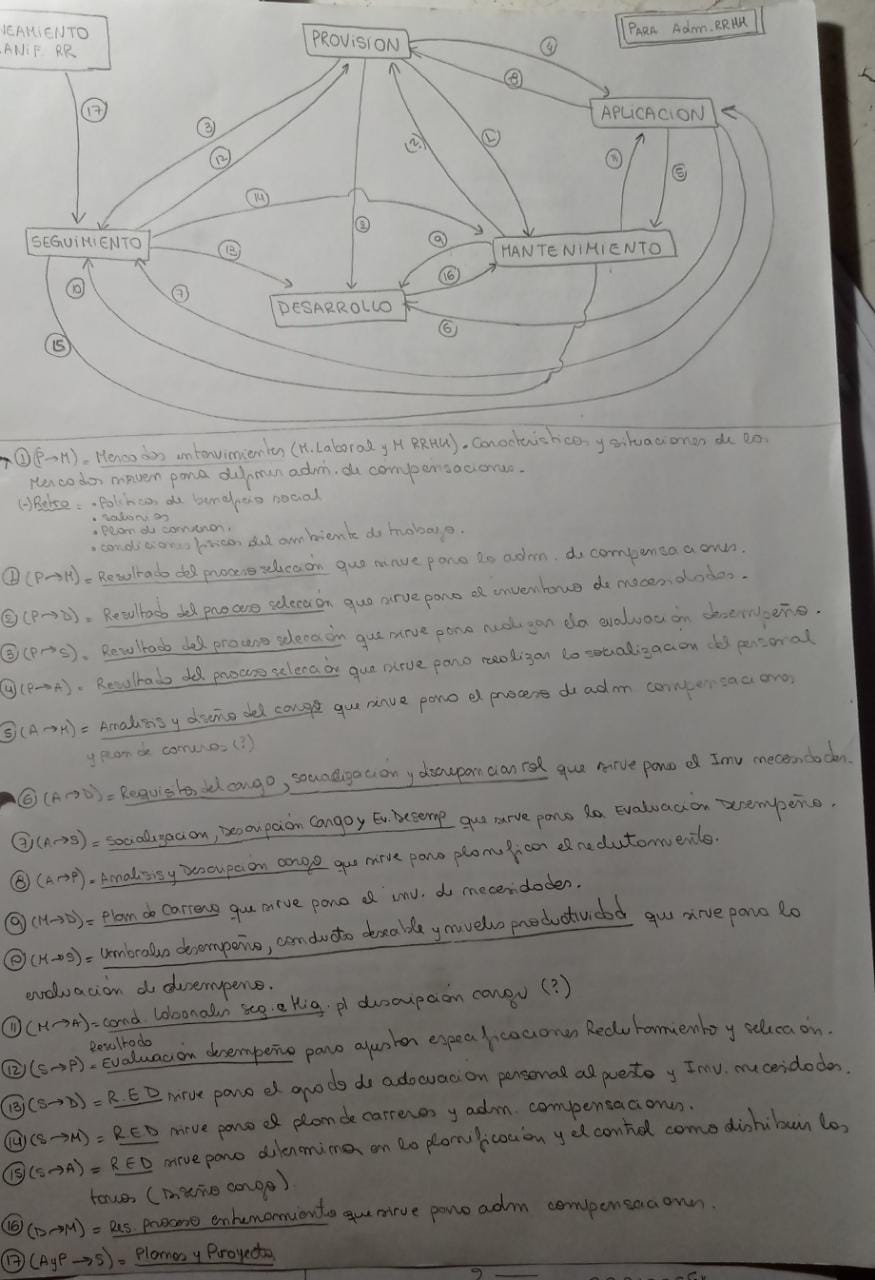 NEAMIENTO
PROVISION
PARA Adm. RRHH
ANIF. RR
4
8
APLICACION
17
3
12
2
1
11
5
14
SEGUIMIENTO
13
2
9
MANTENIMIENTO
10
7
16
DESARROLLO
6
15
① (P→M) = Mercados intervinientes (M. Laboral y M RRHH). Caracteristicas y situaciones de los
Mercados sirven para definir adm. de compensaciones.
(-) Retro = • Politicas de beneficio social
• salarios
• Plan de carreras.
• condiciones fisicas del ambiente de trabajo.
① (P→M) = Resultado del proceso selección que sirve para la adm. de compensaciones.
② (P→D) = Resultado del proceso selección que sirve para el inventario de necesidades.
③ (P→S) = Resultado del proceso selección que sirve para realizar la evaluación desempeño.
④ (P→A) = Resultado del proceso selección que sirve para realizar la socialización del personal
⑤ (A→M) = Analisis y diseño del cargo que sirve para el proceso de adm compensaciones
y plan de carreras (?)
⑥ (A→D) = Requisitos del cargo, socialización y discrepancias rol que sirve para el Inv necesidades.
⑦ (A→S) = Socializacion, Descripción Cargo y Ev. Desemp que sirve para la Evaluación Desempeño.
⑧ (A→P) = Analisis y Descripción cargo que sirve para planificar el reclutamiento.
⑨ (M→D) = Plan de Carrera que sirve para el inv. de necesidades.
⑩ (M→S) = Umbrales desempeño, conducta deseable y niveles productividad que sirve para la
evaluación de desempeño.
⑪ (M→A) = cond. laborales seg. e Hig. p/ descripción cargo (?)
Resultado
⑫ (S→P) = Evaluación desempeño para ajustar especificaciones Reclutamiento y selección.
⑬ (S→D) = R.E.D sirve para el grado de adecuación personal al puesto y Inv. necesidades.
⑭ (S→M) = RED sirve para el plan de carreras y adm. compensaciones.
⑮ (S→A) = RED sirve para determinar en la planificación y el control como distribuir las
tareas (Diseño cargo).
⑯ (D→M) = Res. proceso entrenamiento que sirve para adm compensaciones.
⑰ (AyP→S) = Planes y Proyecto